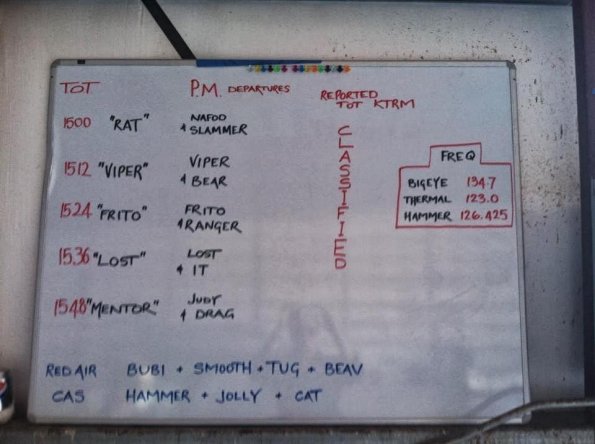 TOT P.M. DEPARTURES REPORTED
TOT KTRM
1500 "RAT" NAFOD
& SLAMMER
1512 "VIPER" VIPER
& BEAR
1524 "FRITO" FRITO
& RANGER
1536 "LOST" LOST
& IT
1548 "MENTOR" JUDY
& DRAG
CLASSIFIED
FREQ
BIGEYE 134.7
THERMAL 123.0
HAMMER 126.425
RED AIR BUBI + SMOOTH + TUG + BEAV
CAS HAMMER + JOLLY + CAT